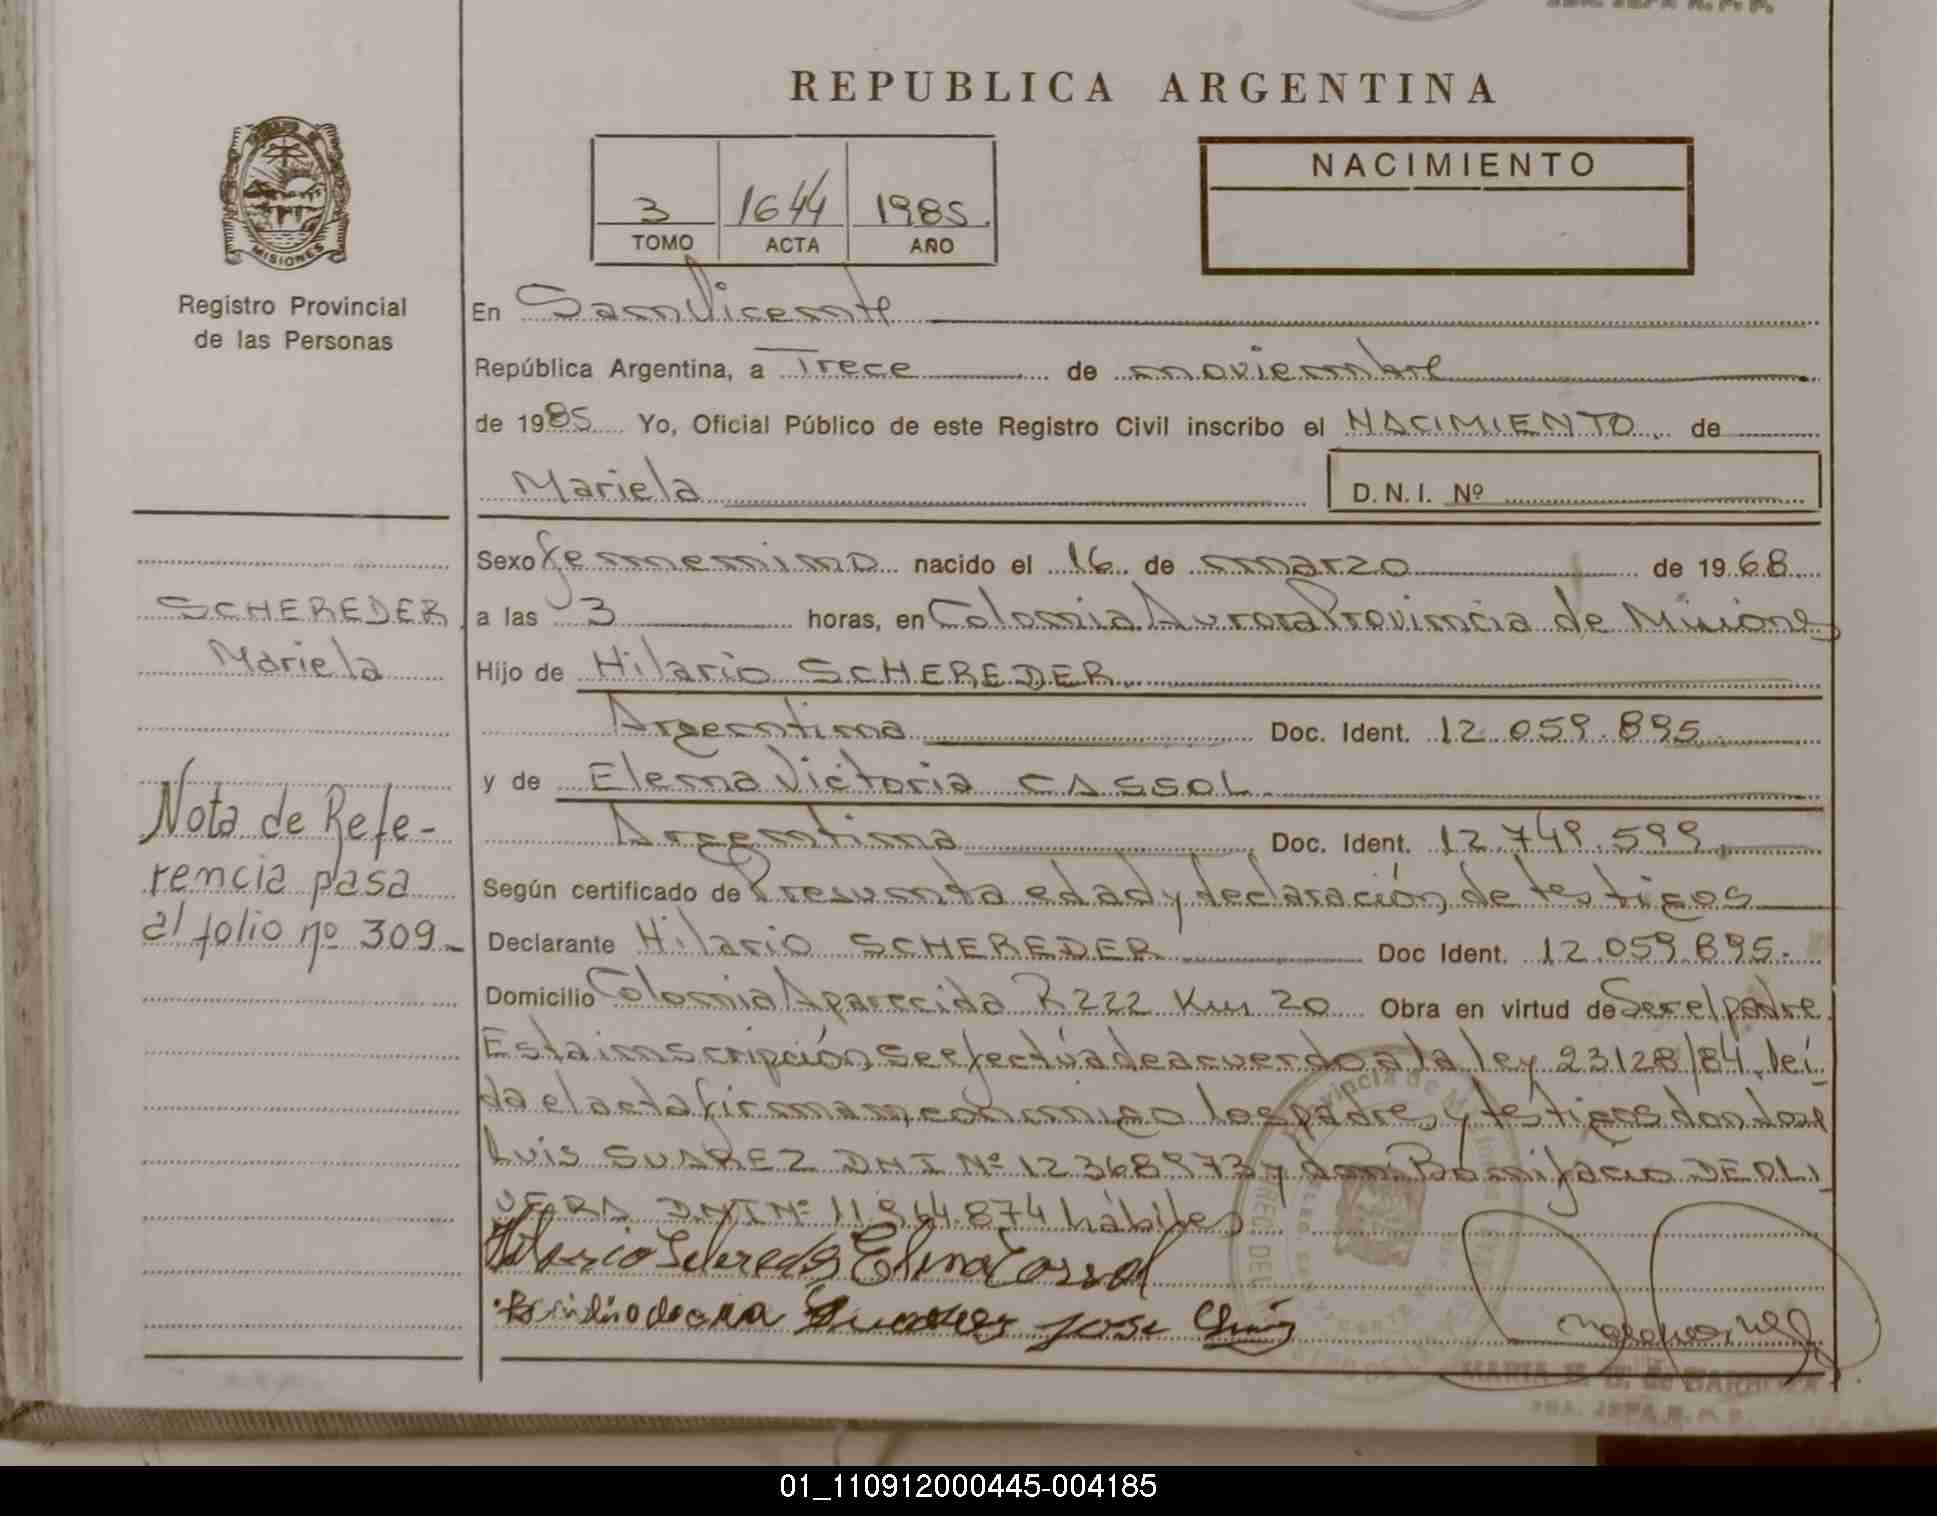 REPUBLICA ARGENTINA
3 1644 1985
TOMO ACTA AÑO
NACIMIENTO
MISIONES
Registro Provincial
de las Personas
En San Vicente
República Argentina, a Trece de noviembre
de 1985 Yo, Oficial Público de este Registro Civil inscribo el NACIMIENTO de
Mariela D.N.I. Nº
Sexo femenino nacido el 16 de marzo de 1968
a las 3 horas, en Colonia Aurora Provincia de Misiones
Hijo de Hilario SCHEREDER
Argentina Doc. Ident. 12.059.895
y de Elena Victoria CASSOL
Argentina Doc. Ident. 12.749.599
Según certificado de Presunta edad y declaración de testigos
Declarante Hilario SCHEREDER Doc Ident. 12.059.895
Domicilio Colonia Aparecida R 222 Km 20 Obra en virtud de Ser el padre
Esta inscripción se efectúa de acuerdo a la ley 23128/84. Leí-
da el acta firman conmigo los padres y testigos don José
Luis SUAREZ DNI Nº 12368973 y don Bonifacio DE OLI
VERA DNI Nº 11.944.874 hábiles
SCHEREDER
Mariela
Nota de Refe-
rencia pasa
al folio nº 309
Hilario Schereder Elena Cassol
Suarez Jose Luis
MARIA BARBOZA
JEFA R. P. P.
01_110912000445-004185